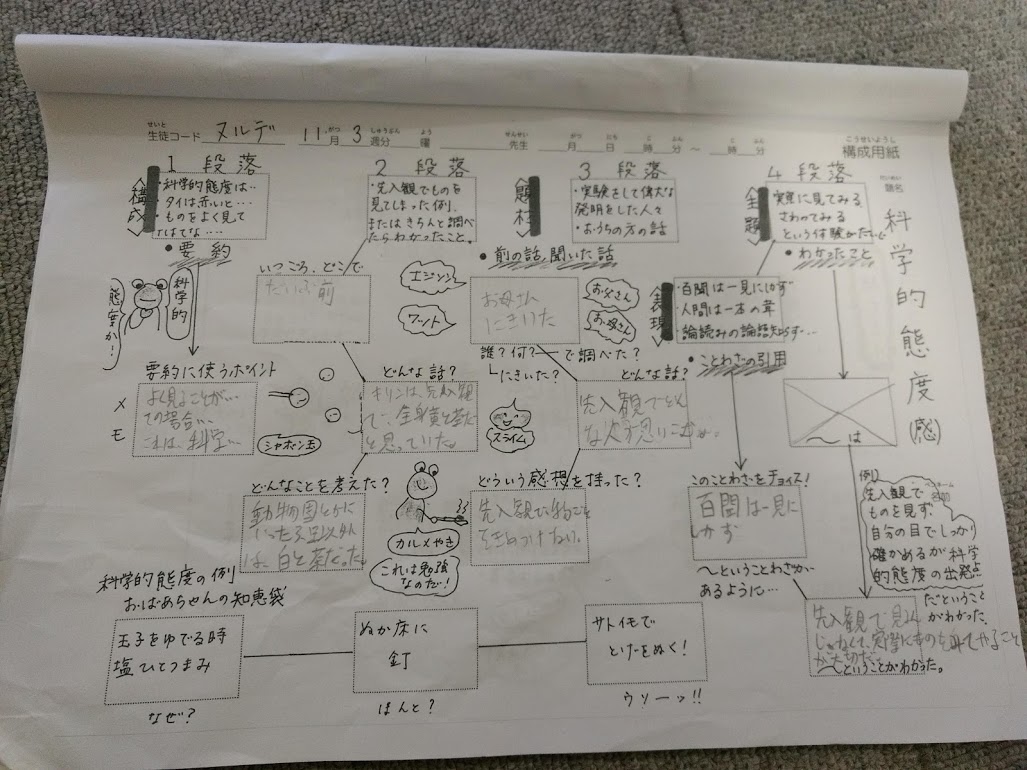 生徒コード ヌルデ 11月 3週分 曜 先生 月 日 時 分 〜 時 分
構成用紙
題名
科学的態度(感)
1 段落
構成
・科学的態度は…
タイは赤いと…
・ものをよく見て
はてな……
・要約
科学的
態度か!
要約に使うポイント
メモ
よく見ることが…
ての場合…
これは、科学…
シャボン玉
2 段落
・先入観でものを
見てしまった例。
またはきちんと調べ
たらわかったこと。
いつころ、どこで
だいぶ前
どんな話?
キリンは、先入観
で、全身黄と茶だ
と思っていた。
どんなことを考えた?
動物園とかに
いったら足以外
は、白と茶だった。
カルメやき
これは勉強
なのだ!
3 段落
題材
・実験をして偉大な
発明をした人々
・おうちの方の話
・前の話、聞いた話
エジソン
ワット
お母さん
にきいた
お父さん
お母さん
誰?何?ーで調べた?
にきいた?
スライム
どんな話?
先入観で
どういう感想を持った?
先入観で物ごと
をきめつけない。
4 段落
主題
実際に見てみる
さわってみる
という体験がたいせつ
・わかったこと
表現
・百聞は一見にしかず
・人間は一本の葦
・論語読みの論語知らず…
・ことわざの引用
〜は
このことわざをチョイス!
百聞は一見に
しかず
〜ということわざが
あるように…
例)
先入観で
ものを見ず、
自分の目でしっかり
確かめるが科学
的態度の出発点
だということ
がわかった。
先入観で見るん
じゃなくて、実際にものを見てやること
が大切だ
〜ということがわかった。
科学的態度の例
おばあちゃんの知恵袋
玉子をゆでる時
塩ひとつまみ
なぜ?
ぬか床に
釘
ほんと?
サトイモで
とげをぬく!
ウソーッ!!